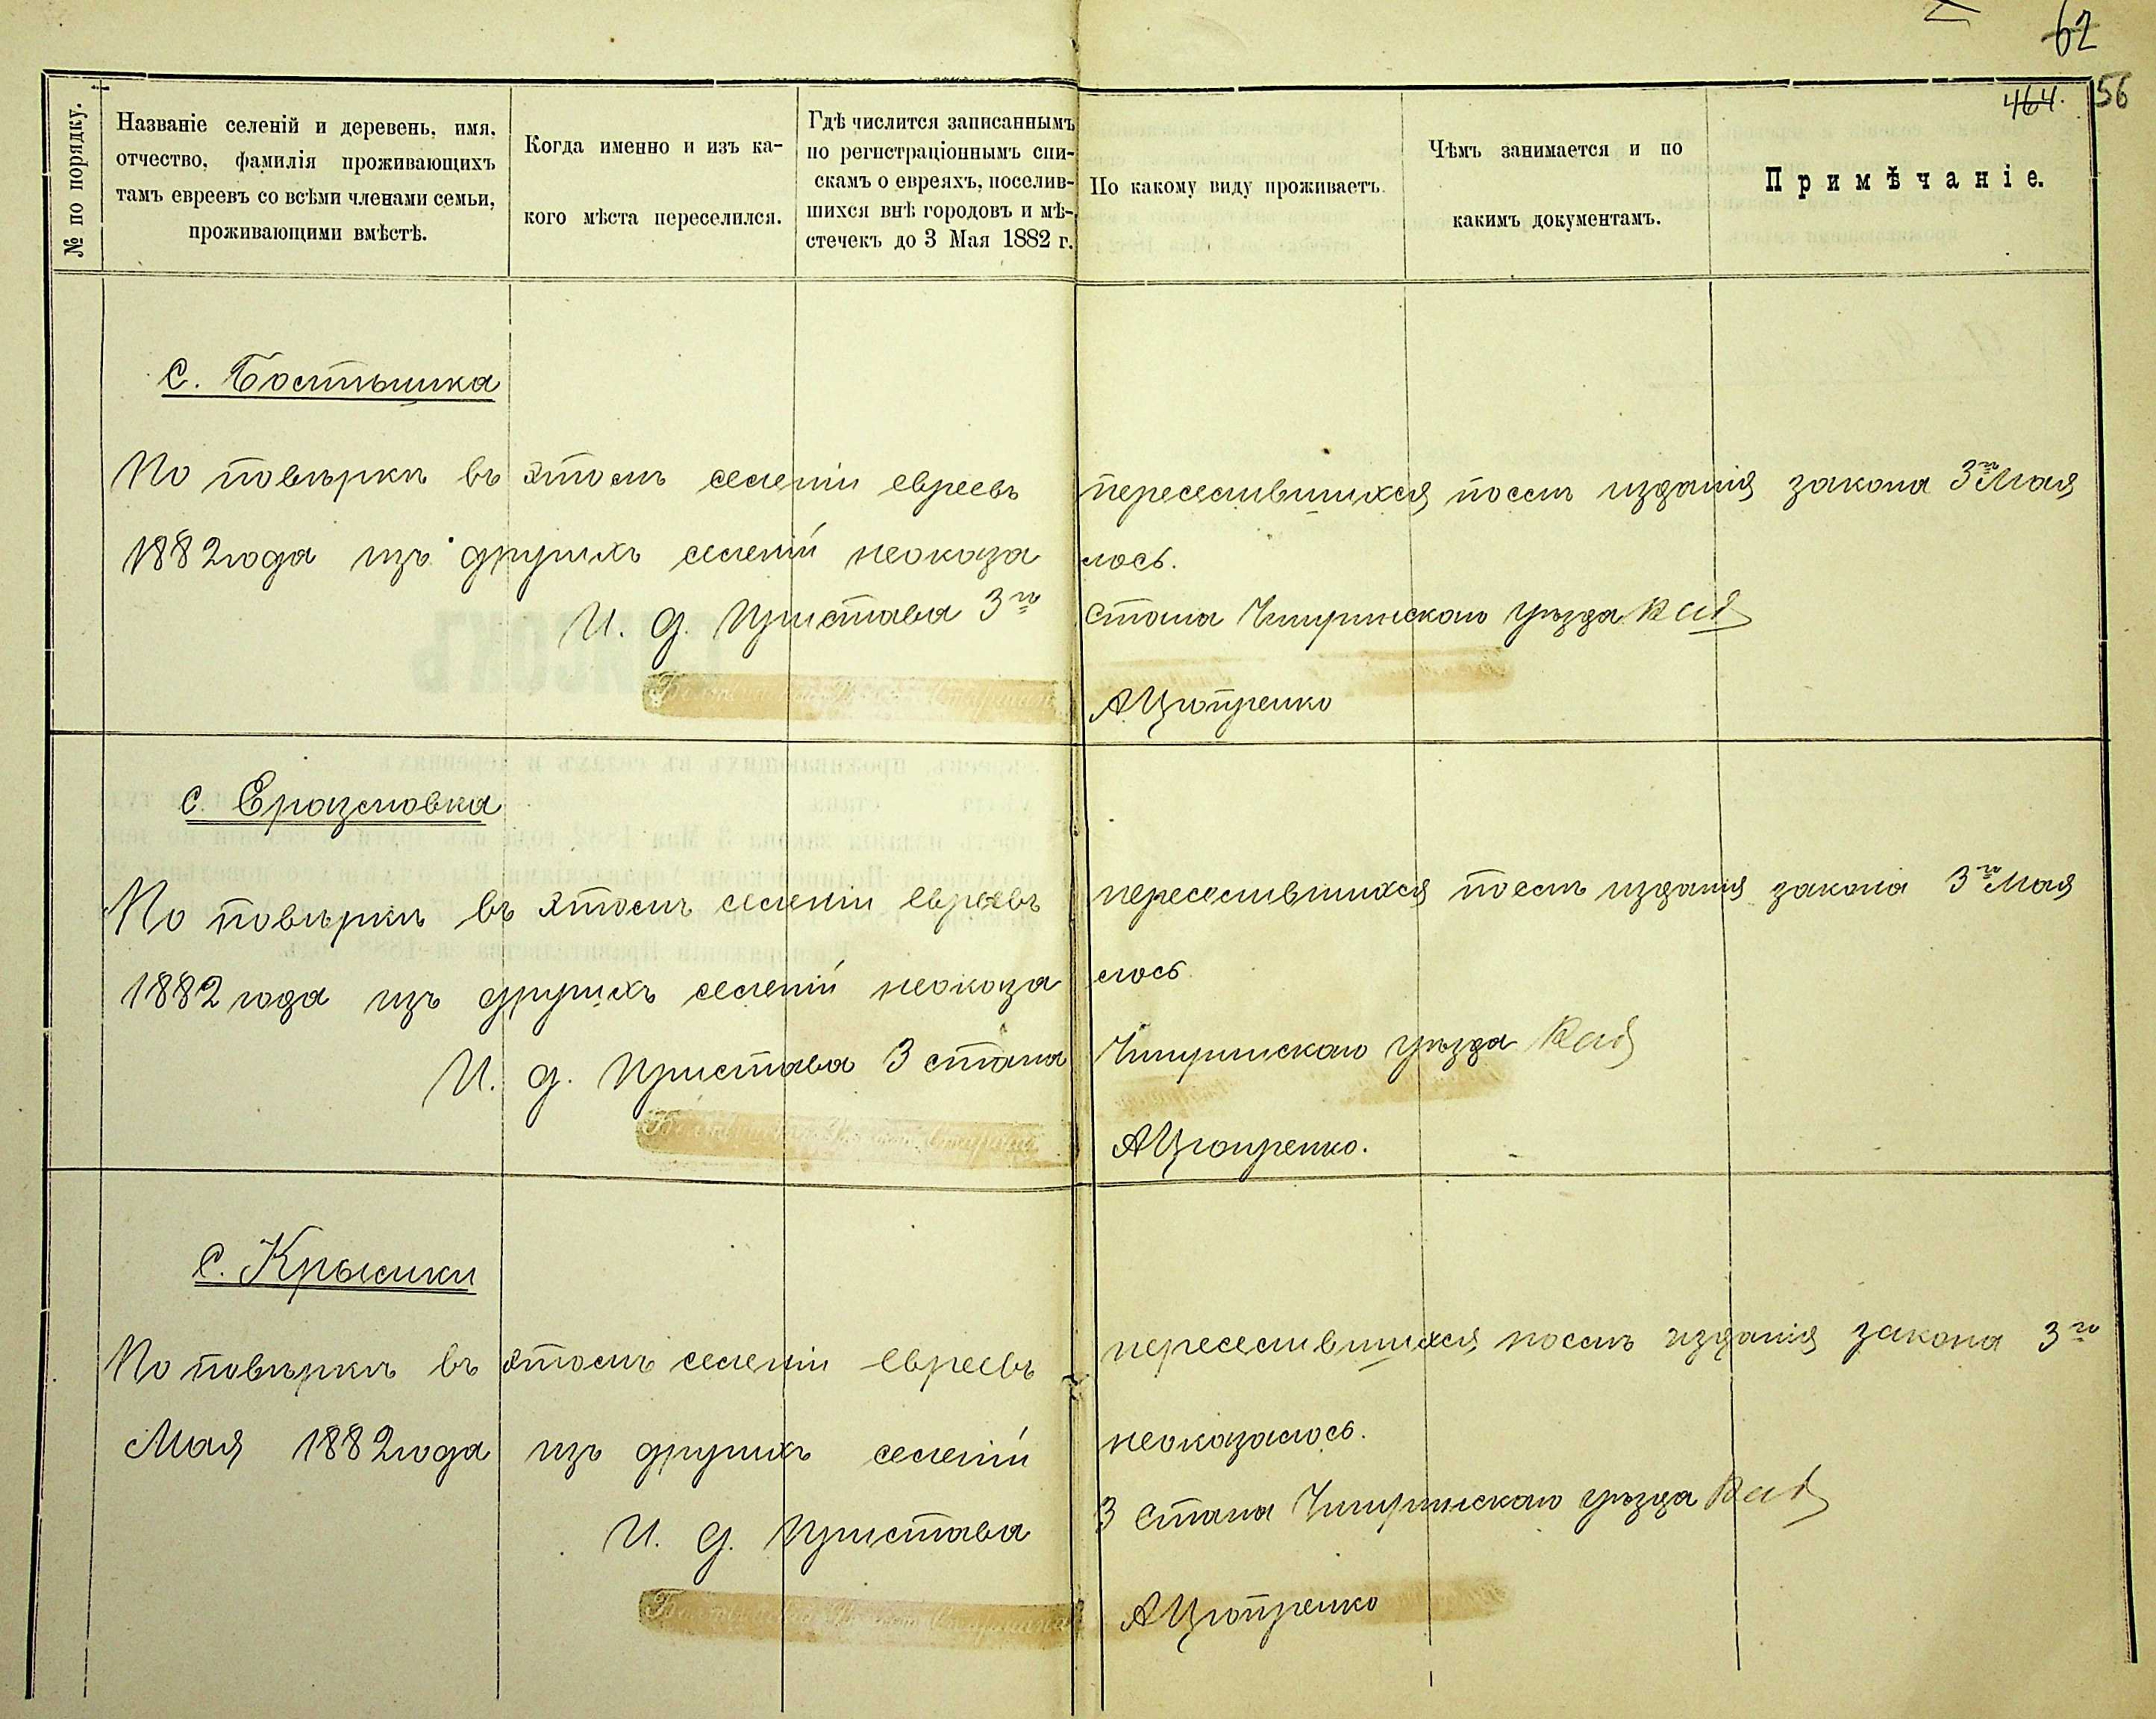 62
464. 56
№ по порядку.
Названіе селеній и деревень, имя,
отчество, фамилія проживающихъ
тамъ евреевъ со всѣми членами семьи,
проживающими вмѣстѣ.
Когда именно и изъ ка-
кого мѣста переселился.
Гдѣ числится записаннымъ
по регистраціоннымъ спи-
скамъ о евреяхъ, поселив-
шихся внѣ городовъ и мѣ-
стечекъ до 3 Мая 1882 г.
По какому виду проживаетъ.
Чѣмъ занимается и по
какимъ документамъ.
Примѣчаніе.
с. Бостышка
По повѣркѣ въ этомъ селеніи евреевъ переселившихся послѣ изданія закона 3го Мая
1882 года изъ другихъ селеній неоказа лось.
И. д. Пристава 3го Стана Чигиринскаго уѣзда
А Цюпренко
с. Еразмовка
По повѣркѣ въ этомъ селеніи евреевъ переселившихся послѣ изданія закона 3го Мая
1882 года изъ другихъ селеній неоказа лось
И. д. Пристава 3 стана Чигиринскаго уѣзда
А Цюпренко.
с. Крымки
По повѣркѣ въ этомъ селеніи евреевъ переселившихся послѣ изданія закона 3го
Мая 1882 года изъ другихъ селеній неоказалось.
И. д. Пристава 3 Стана Чигиринскаго уѣзда
А Цюпренко